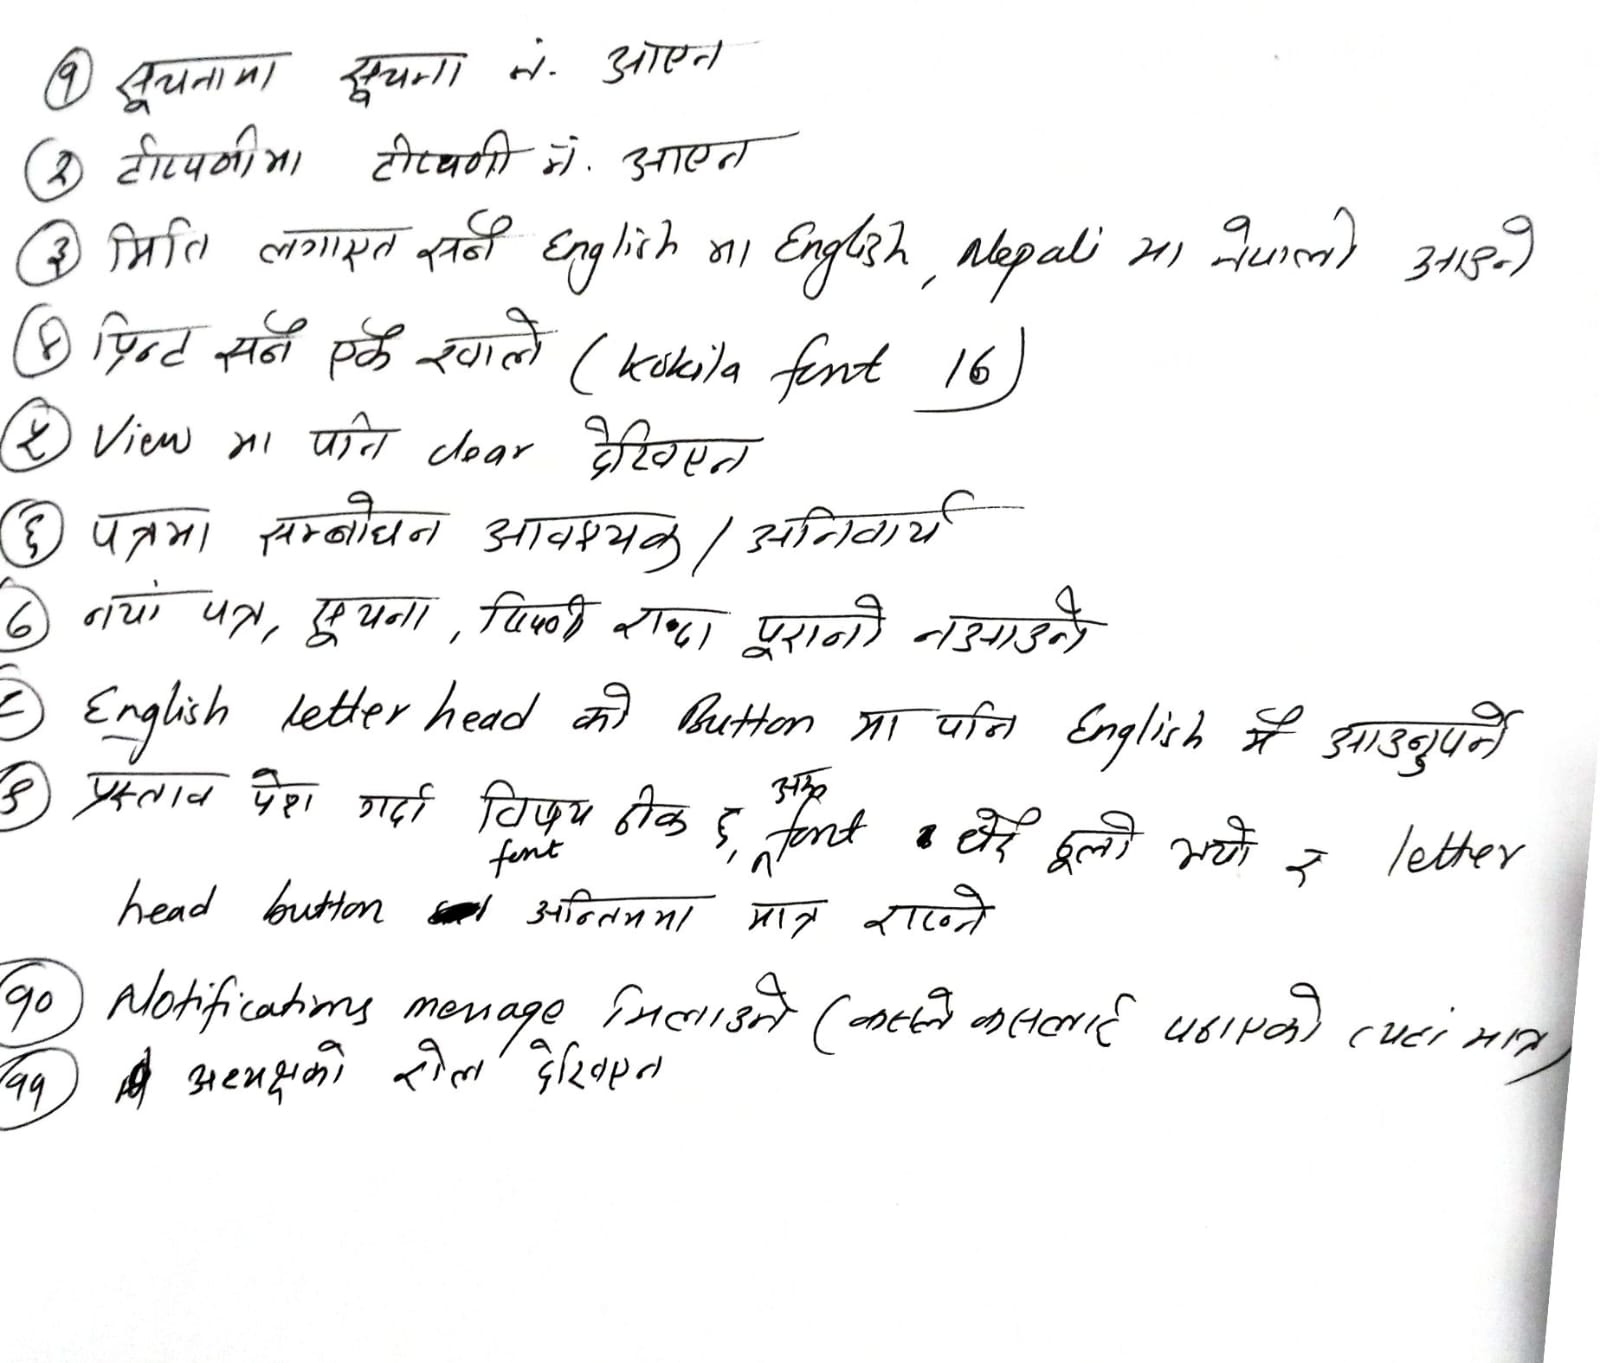 १ सूचनामा सूचना नं. आएन
२ टीप्पणीमा टीप्पणी नं. आएन
३ मिति लगाएत सबै English मा English, Nepali मा नेपाली आउने
४ प्रिन्ट सबै एकै खाले (Kokila font 16)
५ View मा पनि clear देखिएन
६ पत्रमा सम्बोधन आवश्यक / अनिवार्य
७ नयाँ पत्र, सूचना, टिप्पणी राख्दा पूरानो नआउने
८ English letter head को Button मा पनि English मै आउनुपर्ने
९ प्रस्ताव पेश गर्दा विषय font ठीक छ, अरू font धेरै ठूलो भयो र letter
head button अन्तिममा मात्र राख्ने
१० Notifications message मिलाउने (कस्ले कसलाई पठाएको त्यहाँ मात्र)
११ अध्यक्षको रोल देखिएन